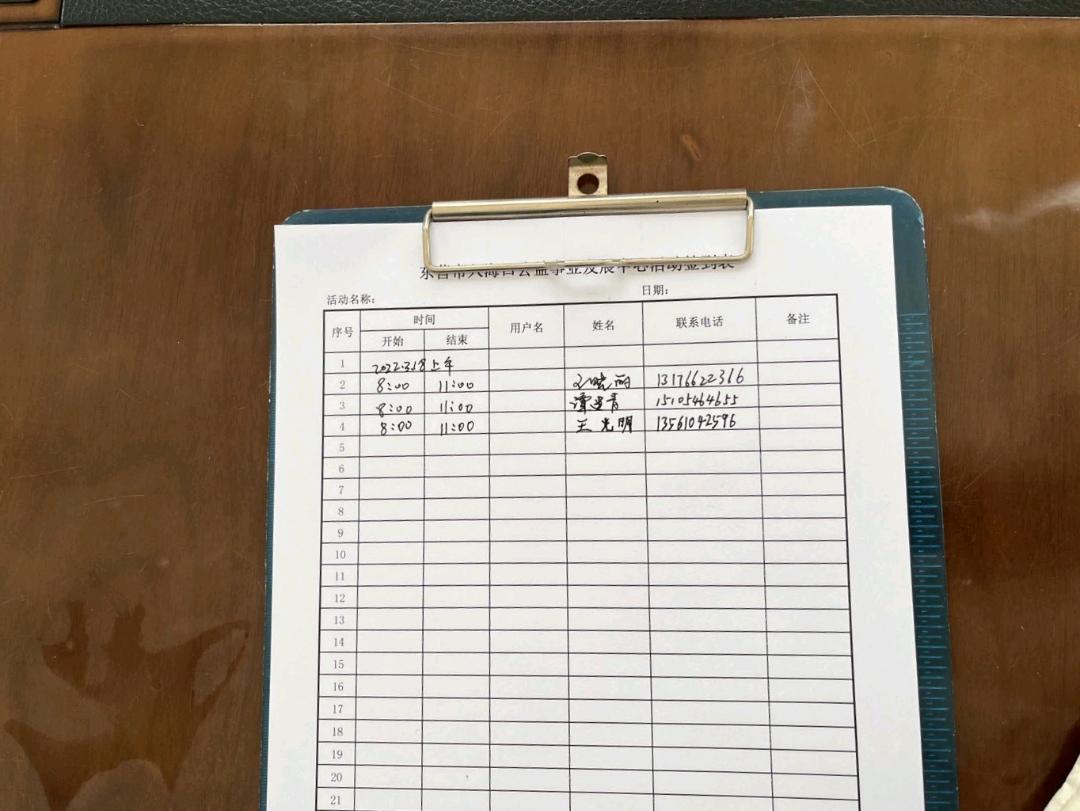 东营市大海口公益事业发展中心活动签到表
活动名称: 日期:
序号 时间 用户名 姓名 联系电话 备注
开始 结束
1 2022.3.18上午
2 8:00 11:00 晓丽 13176622366
3 8:00 11:00 谭 青 15105464655
4 8:00 11:00 王光明 13561042596
5
6
7
8
9
10
11
12
13
14
15
16
17
18
19
20
21